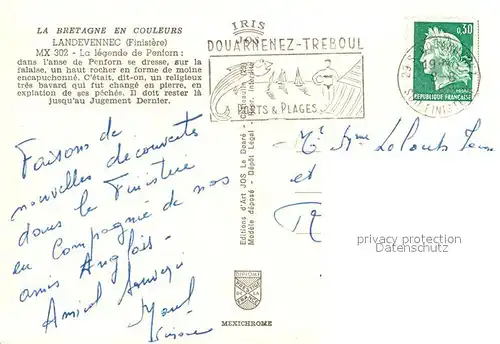 LA BRETAGNE EN COULEURS
LANDEVENNEC (Finistère)
MX 302 - La légende de Penforn :
dans l'anse de Penforn se dresse, sur la
falaise, un haut rocher en forme de moine
encapuchonné. C'était, dit-on, un religieux
très bavard qui fut changé en pierre, en
expiation de ses péchés. Il doit rester là
jusqu'au Jugement Dernier.
Faisons de
nouvelles découvertes
dans le Finistère
en Compagnie de nos
amis Anglais -
Amical Souvenir
IRIS
JOS
DOUARNENEZ-TREBOUL
PORTS & PLAGES
Editions d'Art JOS Le Doaré -
Modèle déposé - Dépôt Légal
MEXICHROME
0,30
REPUBLIQUE FRANÇAISE
FINISTERE
Mr Mme
et
privacy protection
Datenschutz